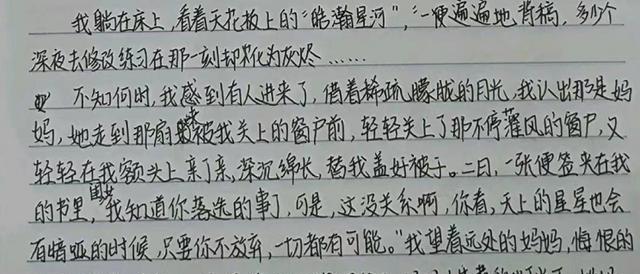 我躺在床上，看着天花板上的“皓瀚星河”，一便遍遍地背稿，多少个
深夜去修改练习在那一刻却化为灰烬……
不知何时，我感到有人进来了，借着稀疏、朦胧的月光，我认出那是妈
妈，她走到那扇被我关上的窗户前，轻轻关上了那不停灌风的窗户，又
轻轻在我额头上亲了亲，深沉绵长，替我盖好被子。二日，一张便签夹在我
的书里，我知道你落选的事了，可是，这没关系啊，你看，天上的星星也会
有暗哑的时候，只要你不放弃，一切都有可能。”我望着远处的妈妈，悔恨的